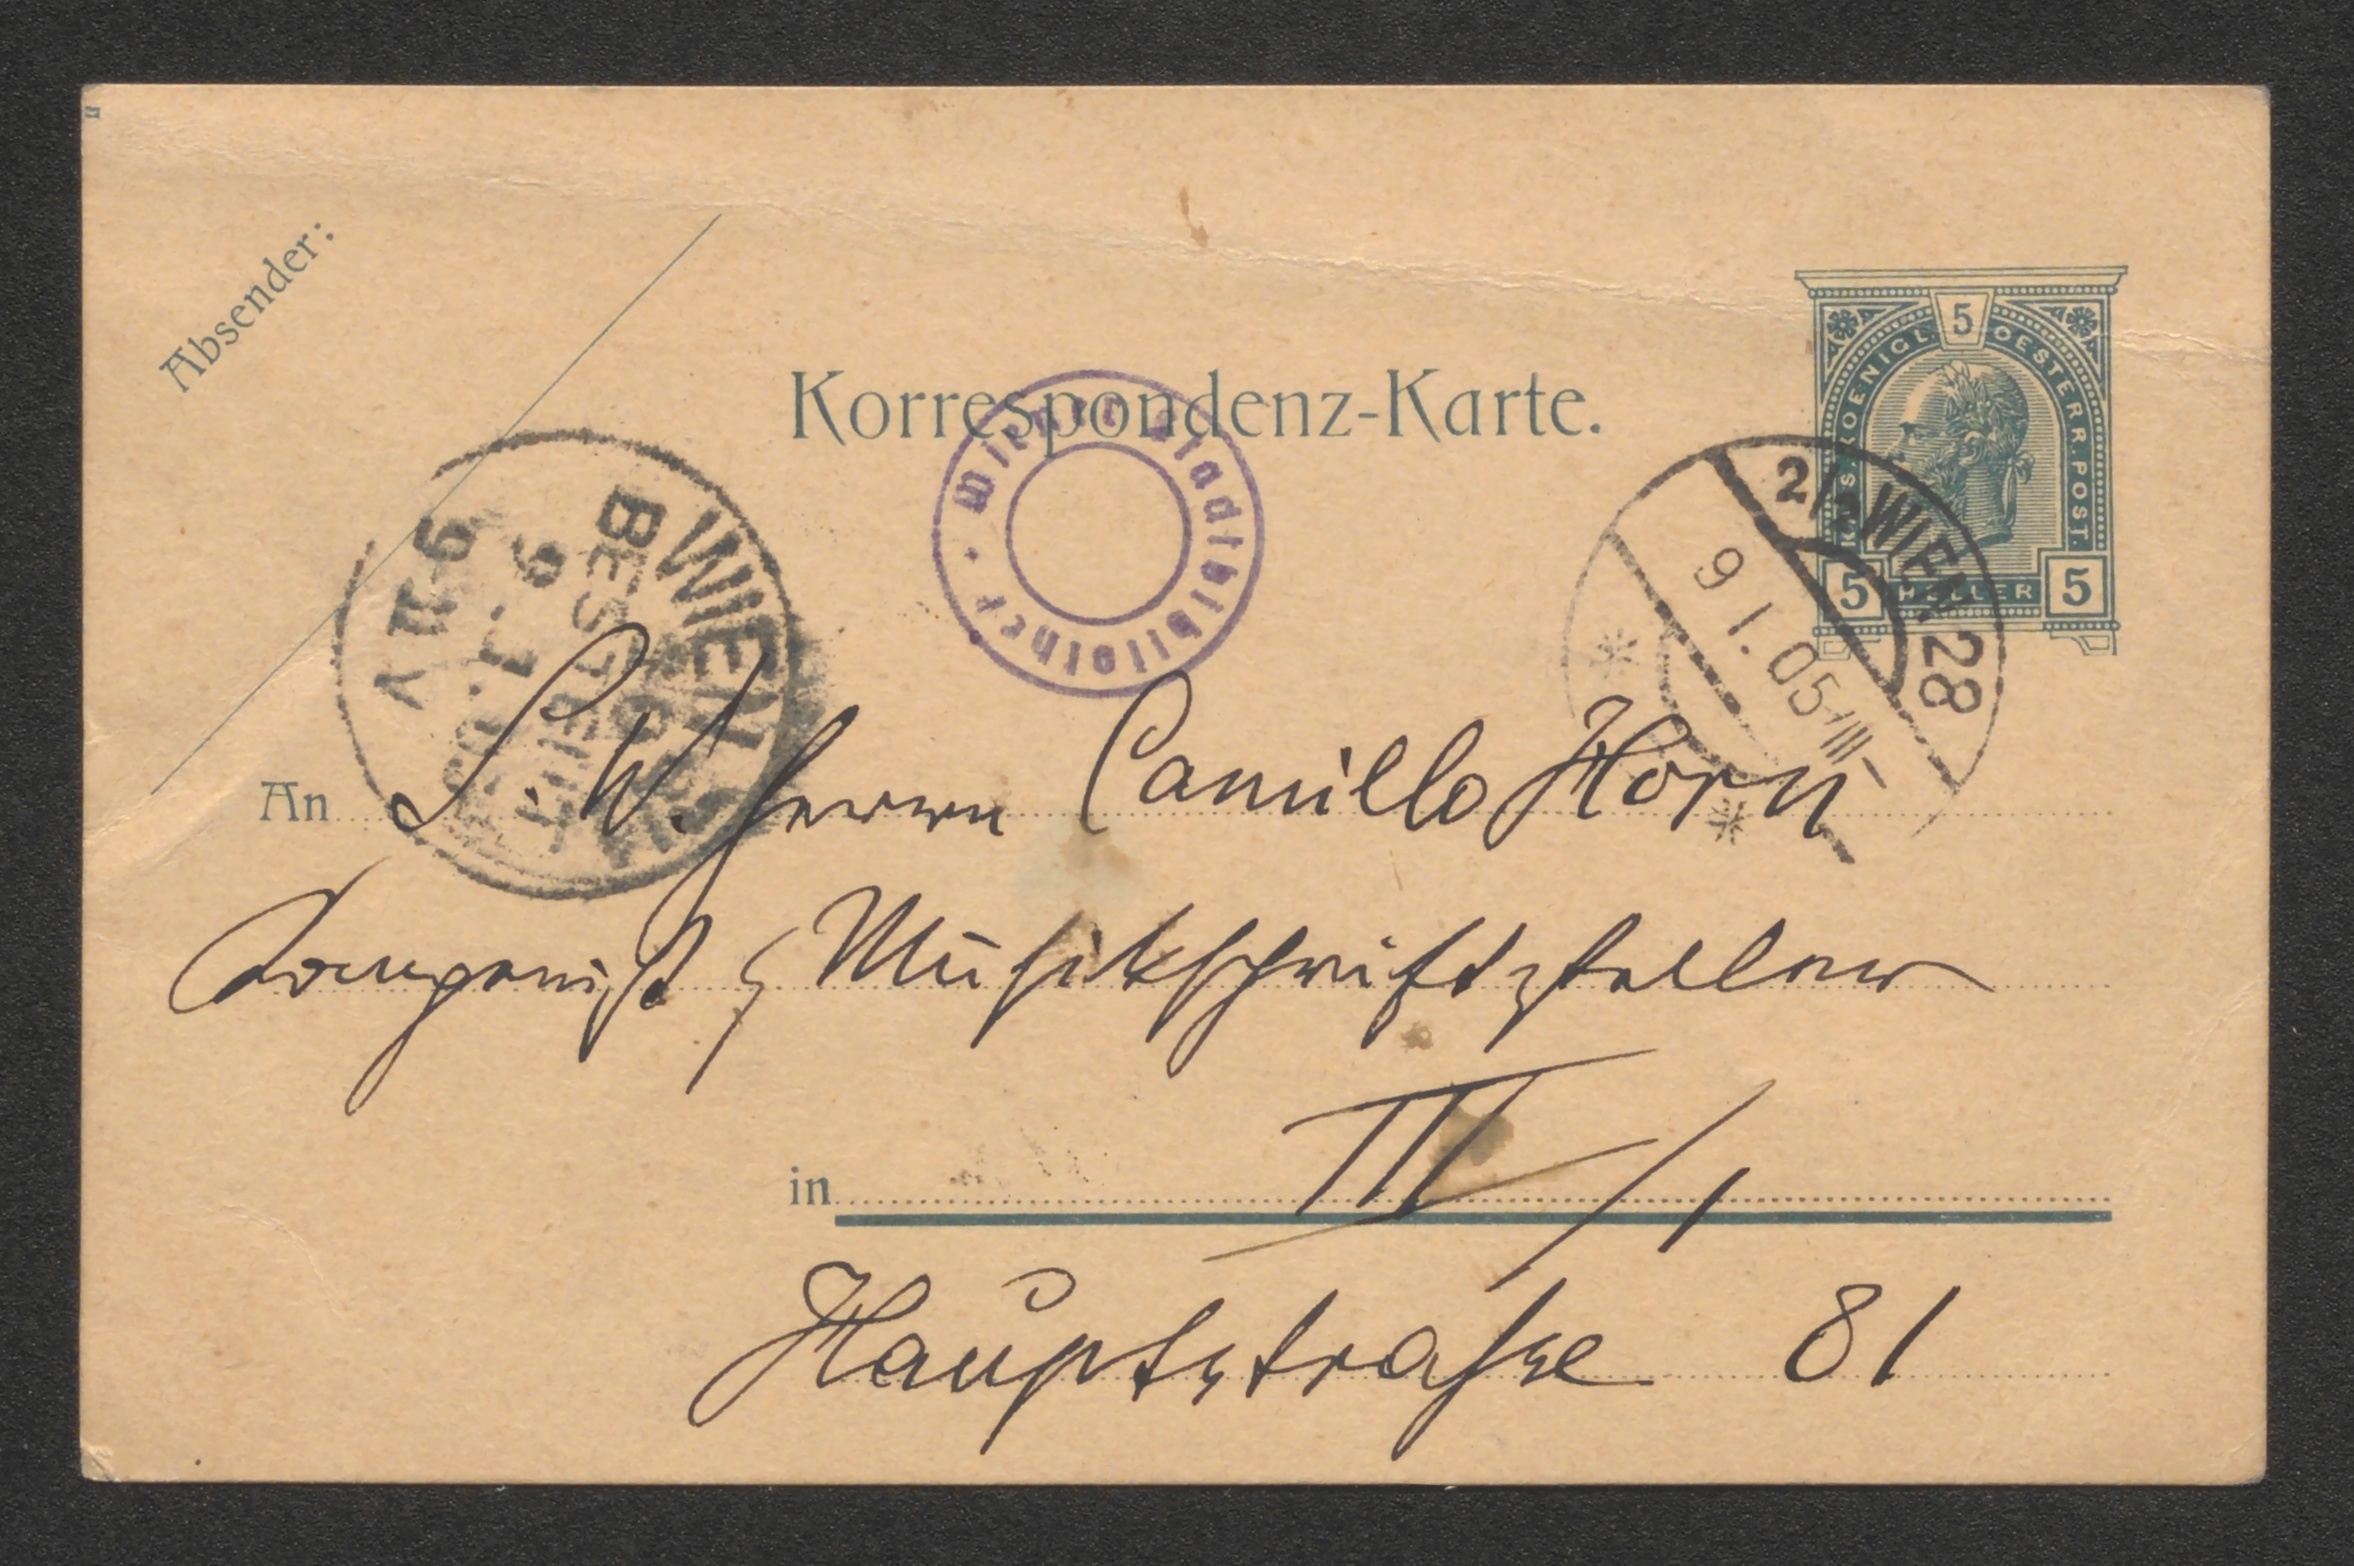 Absender:
Korrespondenz-Karte.
Wiener Stadtbibliothek
KAIS. KOENIGL. OESTERR. POST.
5
5 HELLER 5
2/2 WIEN 28
9 I. 05
WIEN
BESTELLT
9. I. 05
9 V
An S. W. Herrn Camillo Horn
Componist & Musikschriftsteller
in III/1
Hauptstrasse 81